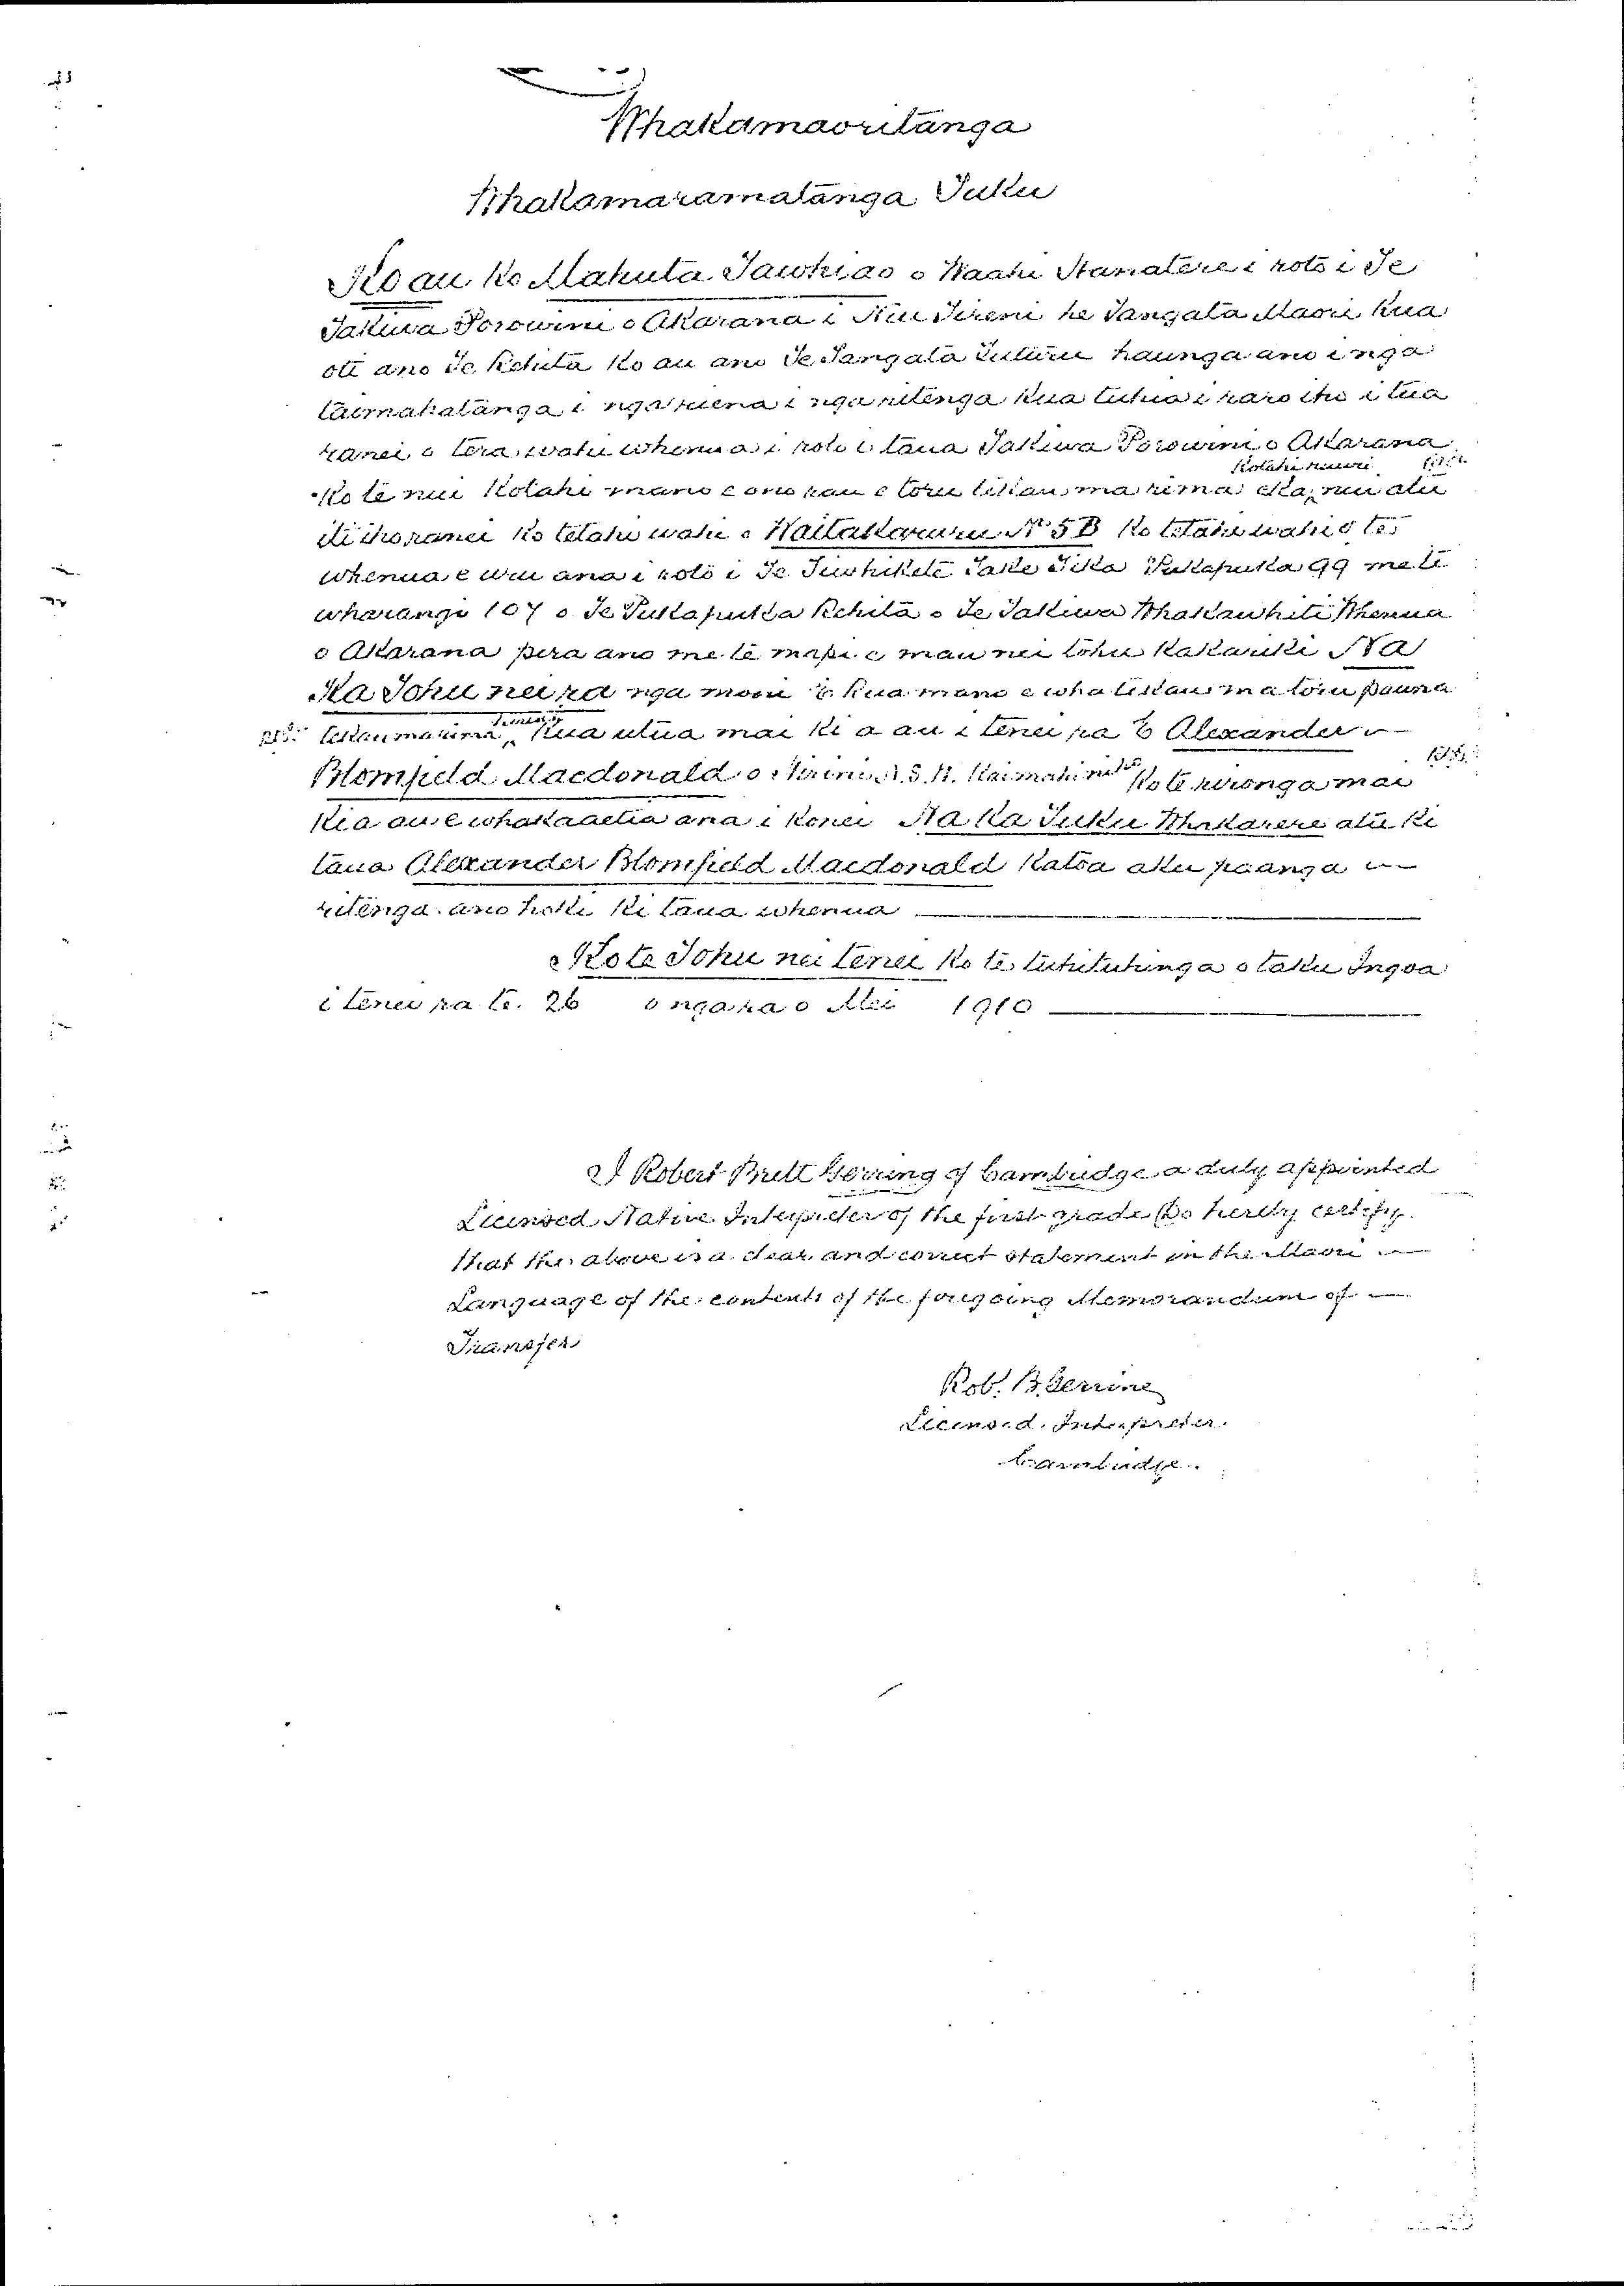 Whakamaoritanga
Whakamaramatanga Tuku
Ko au ko Mahuta Tawhiao o Waahi Hanatere i roto i Te
Takiwa Porowini o Akarana i Niu Tireni he Tangata Maori kua
oti ano Te Rehita ko au ano Te Tangata Tuturu haunga ano i nga
taimahatanga i nga riena i nga ritenga kua tuhia i raro iho i tua
ranei o tera wahi whenua i roto i taua Takiwa Porowini o Akarana
kotahi ruuri
Ko te nui kotahi mano e ono rau e toru tekau ma rima eka nui atu
iti iho ranei ko tetahi wahi o Waitakaruru No 5B ko tetahi wahi o te
whenua e uru ana i roto i Te Tiwhikete Take Tika Pukapuka 99 me te
wharangi 107 o Te Pukapuka Rehita o Te Takiwa Whakawhiti Whenua
o Akarana pera ano me te mapi e mau nei tohu kakariki Na
Ka Tohu nei ra nga moni E Rua mano e wha tekau ma toru pauna
tekau ma rima kua utua mai ki a au i tenei ra E Alexander
Blomfield Macdonald o N.S.W. Kaimahi Ko te rironga mai
ki a au e whakaaetia ana i konei Na Ka Tuku Whakarere atu ki
taua Alexander Blomfield Macdonald katoa aku paanga
ritenga ano hoki ki taua whenua
Ko te Tohu nei tenei ko te tuhituhinga o taku Ingoa
i tenei ra te 26 o nga ra o Mei 1910
I Robert Brett Gerring of Cambridge a duly appointed
Licensed Native Interpreter of the first grade Do hereby certify
that the above is a clear and correct statement in the Maori
Language of the contents of the foregoing Memorandum of
Transfer
Rob. B. Gerring
Licensed Interpreter.
Cambridge.